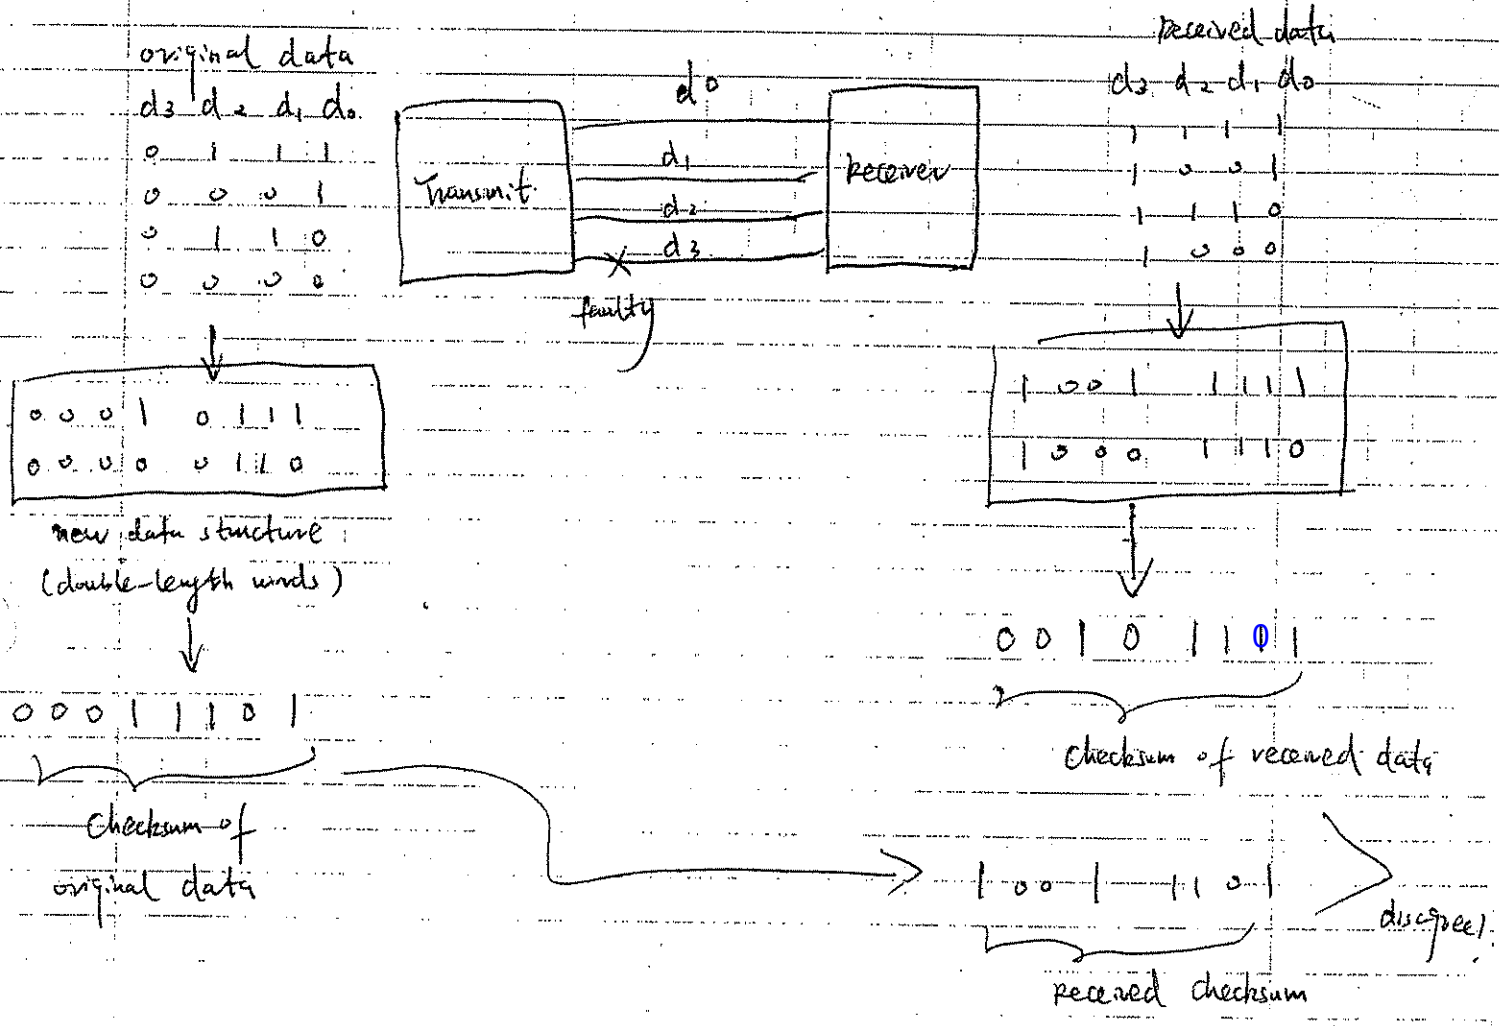 original data
d3 d2 d1 d0
0 1 1 1
0 0 0 1
0 1 1 0
0 0 0 0
0 0 0 1 0 1 1 1
0 0 0 0 0 1 1 0
new data structure
(double-length words)
0 0 0 1 1 1 0 1
checksum of
original data
Transmit
d0
d1
d2
d3
faulty
Receiver
Received data
d3 d2 d1 d0
1 1 1 1
1 0 0 1
1 1 1 0
1 0 0 0
1 0 0 1 1 1 1 1
1 0 0 0 1 1 1 0
0 0 1 0 1 1 0 1
checksum of received data
1 0 0 1 1 1 0 1
received checksum
disagree!